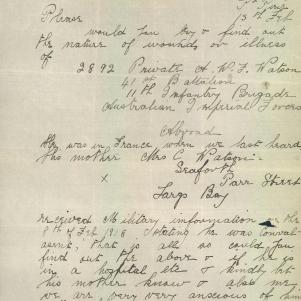 13th Feb
Please
would you try & find out
the nature of wounds or illness
of
2892 Private A. W. F. Watson
41st Battalion
11th Infantry Brigade
Australian Imperial Forces
Abroad
He was in France when we last heard
his mother Mrs C Watson
Seaforth
x Parr Street
Largs Bay
received Military information on the
8th of Feb 1918 stating he was conval
escent. That is all so could you
find out for above & if he is
in a hospital etc & kindly let
his mother know & also me
we are very very anxious of him